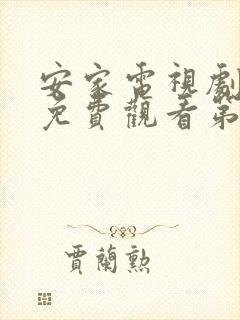 安家電視劇
免費觀看第
賈蘭勲